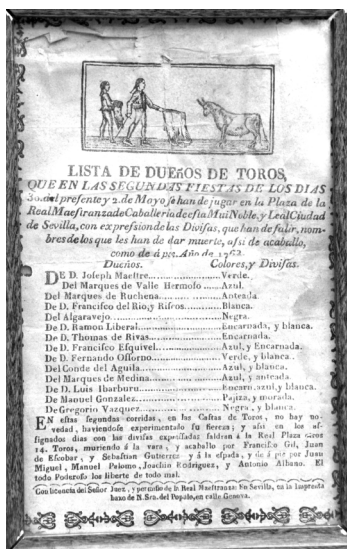 LISTA DE DUEñOS DE TOROS,
QUE EN LAS SEGUNDAS FIESTAS DE LOS DIAS
30. del presente y 2. de Mayo se han de jugar en la Plaza de la
Real Maestranza de Caballeria de esta Mui Noble, y Leal Ciudad
de Sevilla, con expresion de las Divisas, que han de salir, nom-
bres de los que les han de dar muerte, asi de acaballo,
como de á pie. Año de
Dueños. Colores, y Divisas.
DE D. Joseph Maestre. Verde.
Del Marques de Valle Hermoso Azul.
Del Marques de Ruchena. Anteada.
De D. Francisco del Rio, y Rifros. Blanca.
Del Algaravejo. Negra.
De D. Ramon Liberal. Encarnada, y blanca.
De D. Thomas de Rivas. Encarnada.
De D. Francisco Esquivel. Azul, y Encarnada.
De D. Fernando Ossorno. Verde, y blanca.
Del Conde del Aguila. Azul, y blanca.
Del Marques de Medina. Azul, y anteada
De D. Luis Ibarburu. Encarn. azul, y blanca
De Manuel Gonzalez. Pajiza, y morada.
De Gregorio Vazquez. Negra, y blanca.
EN estas segundas corridas, en las Castas de Toros, no hay no-
vedad, haviendose experimentado su fiereza; y asi en los as-
signados dias con las divisas expressadas saldrán á la Real Plaza
14. Toros, muriendo á la vara, y acaballo por Francisco Gil, Juan
de Escobar, y Sebastian Gutierrez y á la espada, y de á pie por Juan
Miguel, Manuel Palomo, Joachin Rodriguez, y Antonio Albano. El
todo Poderoso los liberte de todo mal.
Con licencia del Señor Juez, y permisso de la Real Maestranza: En Sevilla, en la Imprenta
baxo de N. Sra. del Popalo, en calle Genova.